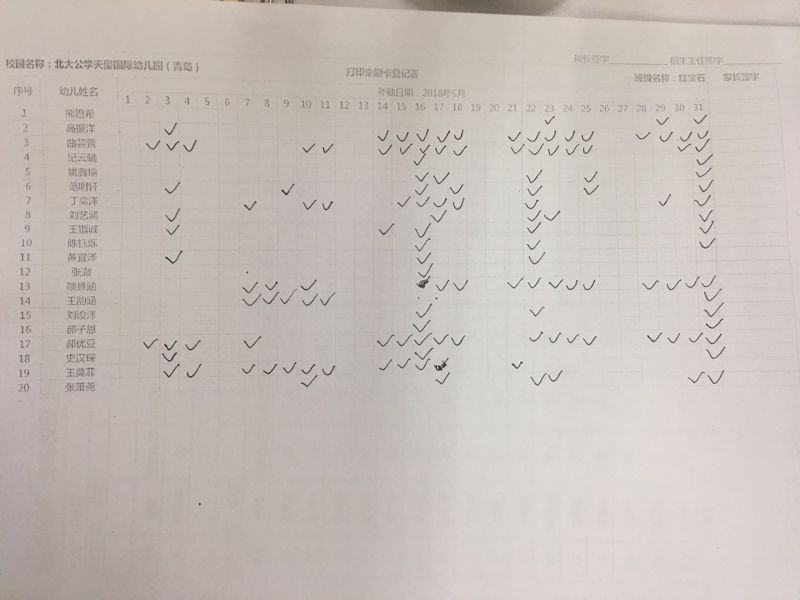 校园名称：北大公学天玺国际幼儿园（青岛）
园长签字 招生主任签字
打印未刷卡登记表
班级名称：红宝石 家长签字
考勤日期：2018年5月
序号 幼儿姓名 1 2 3 4 5 6 7 8 9 10 11 12 13 14 15 16 17 18 19 20 21 22 23 24 25 26 27 28 29 30 31
1 熊恩希
2 高振洋
3 曲芸萱
4 纪云曦
5 姚
6 范明轩
7 丁奕洋
8 刘艺涵
9 王锴诚
10 陈钰烁
11 黄宜泽
12 张澈
13 颜意涵
14 王韵涵
15 刘浚洋
16 郝子恩
17 郝优豆
18 史汉琛
19 王奠菲
20 张萧尧